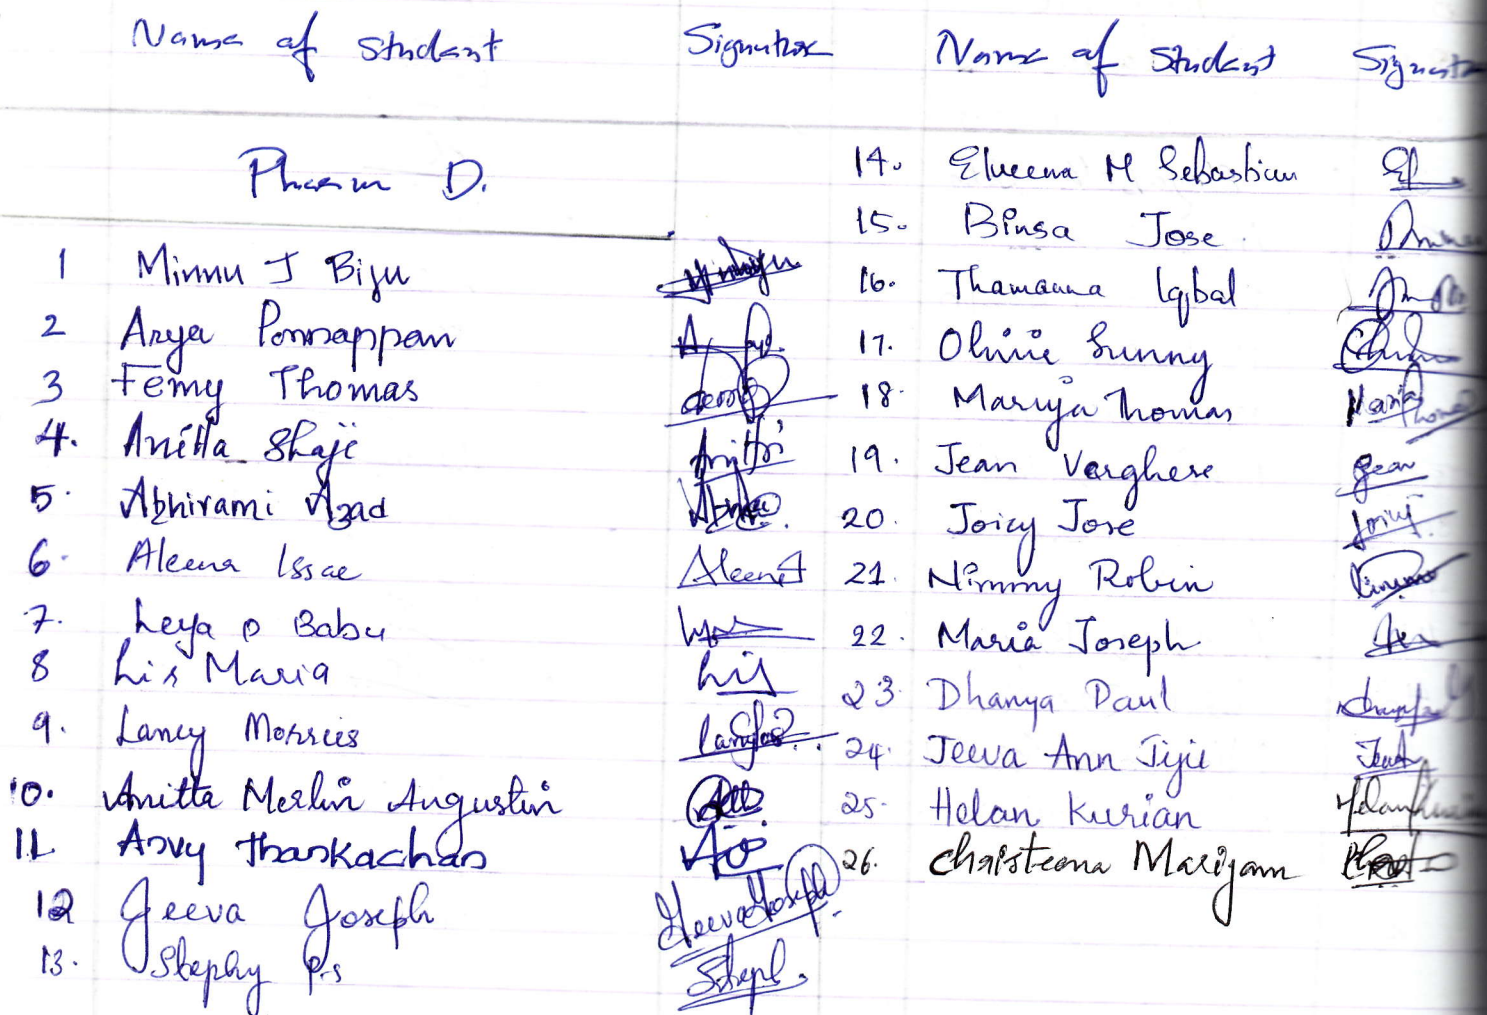 Name of Student Signature Name of Student
Pharm D.
1 Minnu J Biju
2 Arya Ponnappan
3 Femy Thomas
4. Anitta Shaji
5. Abhirami Azad
6. Aleena Issac Aleena
7. Leya P Babu
8 Lis Maria Lis
9. Lancy Morries
10. Anitta Merlin Augustin
11. Asvy Thankachan
12 Jeeva Joseph Jeeva Joseph
13. Stephy P.S Steph.
14. Elveena M Sebastian
15. Binsa Jose
16. Thamanna Iqbal
17. Olivie Sunny
18. Mariya Thomas
19. Jean Varghese Jean
20. Joicy Jose Joicy
21. Nimmy Robin
22. Maria Joseph
23. Dhanya Paul
24. Jeeva Ann Jiji
25. Helan Kurian
26. Christeena Mariyam